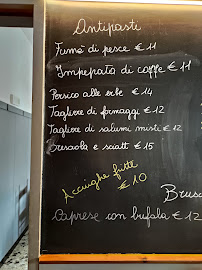 Antipasti
Fumé di pesce € 11
Impepata di cozze € 11
Persico alle erbe € 14
Tagliere di formaggi € 12
Tagliere di salumi misti € 12
Bresaola e sciatt € 15
Acciughe fritte
€ 10
Brusc
Caprese con bufala € 12